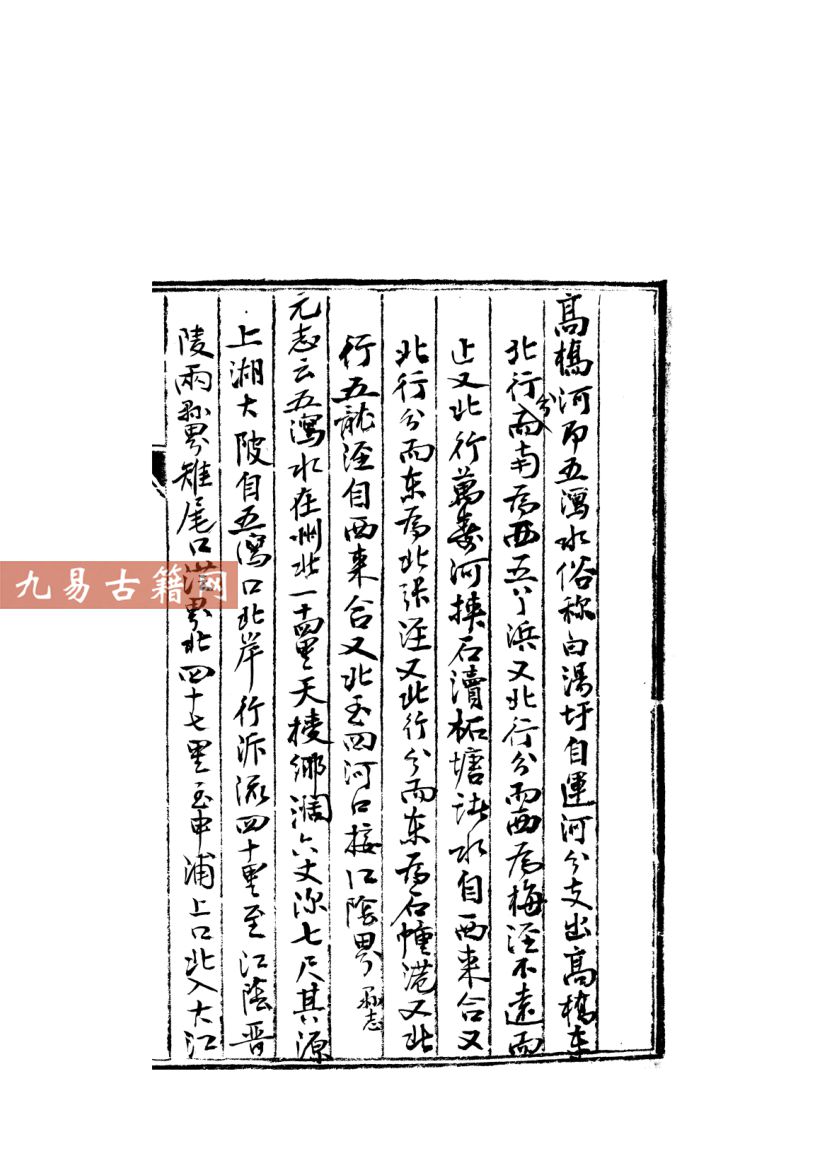 高橋河即五瀉水俗称白湯圩自運河分支出高橋東
北行分而南為西五丫浜又北行分而西為梅涇不遠而
止又北行萬壽河挟石瀆柘塘諸水自西来合又
北行分而东為北張涇又北行分而东為石幢港又北
行五龍涇自西来合又北至四河口接江陰界 縣志
元志云五瀉水在州北一十四里天授鄉濶六丈深七尺其源
上湖大陂自五瀉口北岸行泝流四十里至江陰晋
陵兩縣界雉尾口 界北四十七里至申浦上口北入大江
九易古籍网